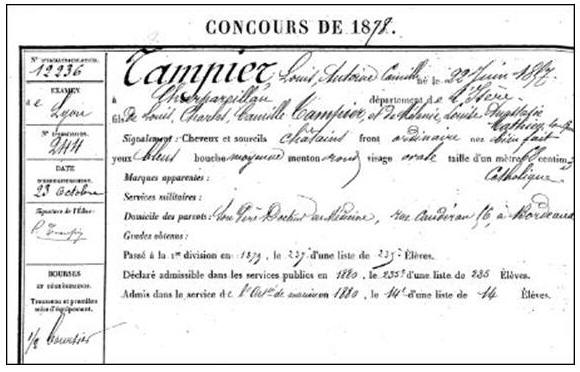 CONCOURS DE 1878.
N° D'IMMATRICULATION.
12236
EXAMEN
de
Lyon
N° D'CONCOURS.
244
DATE
23 Octobre
Signature de l'Élève:
BOURSES
ET
Trousseau et premières
mises d'équipement.
1/2 boursier
Tampier Louis Antoine Camille né le 22 Juin 1857
à département de l'Isère
fils de Louis, Charles, Camille Tampier, et de Louise
Signalement: Cheveux et sourcils châtains front ordinaire nez bien fait
yeux bleus bouche moyenne menton rond visage ovale taille d'un mètre 60 centim
Marques apparentes: Catholique
Services militaires:
Domicile des parents: Son Père Docteur en Médecine, rue Caudéran 56, à Bordeaux
Grades obtenus:
Passé à la 1re division en 1879, le 237e d'une liste de 237 Élèves.
Déclaré admissible dans les services publics en 1880, le 235e d'une liste de 235 Élèves.
Admis dans le service de l'Artie de marine en 1880, le 14e d'une liste de 14 Élèves.